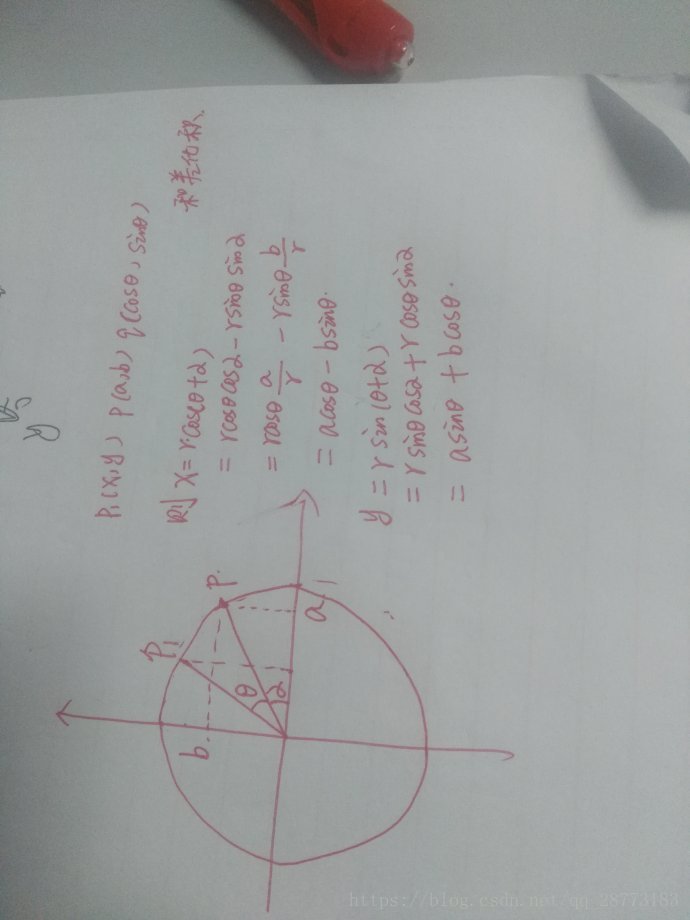 P₁(x,y) P(a,b) q(cosθ, sinθ)
和差化积.
则 x = r·cos(θ+2)
= rcosθcos2 - rsinθsin2
= rcosθ a/r - rsinθ b/r
= acosθ - bsinθ.
y = rsin(θ+2)
= rsinθcos2 + rcosθsin2
= asinθ + bcosθ.
P₁
P.
b.
θ
2
a
https://blog.csdn.net/qq_28773183